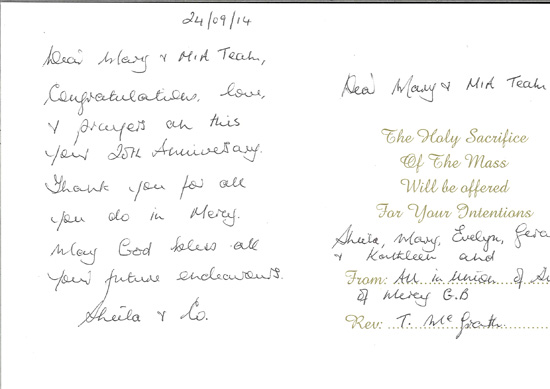 24/09/14
Dear Mary & MIA Team,
Congratulations, love,
& prayers on this
your 20th Anniversary.
Thank you for all
you do in Mercy.
May God bless all
your future endeavours.
Sheila & Co.
Dear Mary & MIA Team
The Holy Sacrifice
Of The Mass
Will be offered
For Your Intentions
Sheila, Mary, Evelyn,
& Kathleen and
From: All in Union of
of Mercy G.B
Rev: T. McGrath